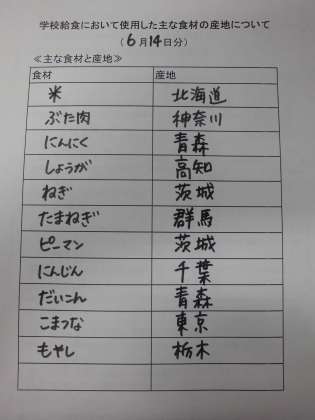 学校給食において使用した主な食材の産地について
(6月14日分)
≪主な食材と産地≫
食材 産地
米 北海道
ぶた肉 神奈川
にんにく 青森
しょうが 高知
ねぎ 茨城
たまねぎ 群馬
ピーマン 茨城
にんじん 千葉
だいこん 青森
こまつな 東京
もやし 栃木